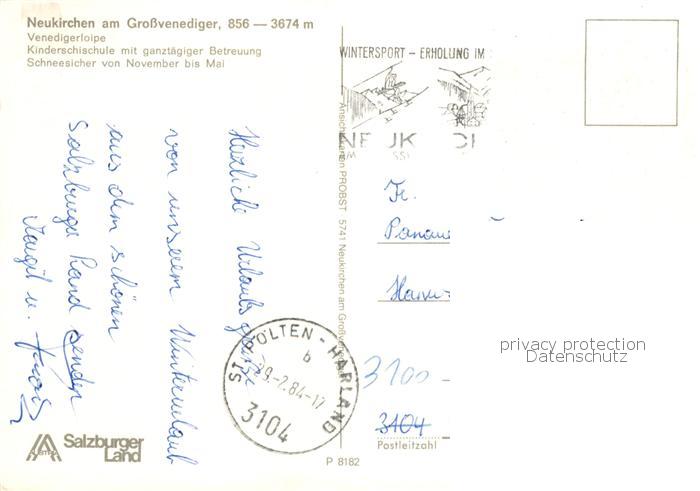 Neukirchen am Großvenediger, 856 — 3674 m
Venedigerloipe
Kinderschischule mit ganztägiger Betreuung
Schneesicher von November bis Mai
WINTERSPORT - ERHOLUNG IM
NEUK CI
Herzliche Urlaubsgrüße
von unserem Winterurlaub
aus dem schönen
Salzburger Land senden
Margit u.
Ansichtskarten PROBST 5741 Neukirchen am Großvenediger
Fr.
3100
3104
Postleitzahl
ST. PÖLTEN - HARLAND
b
9.-2.84-17
3104
Salzburger
Land
P 8182
privacy protection
Datenschutz